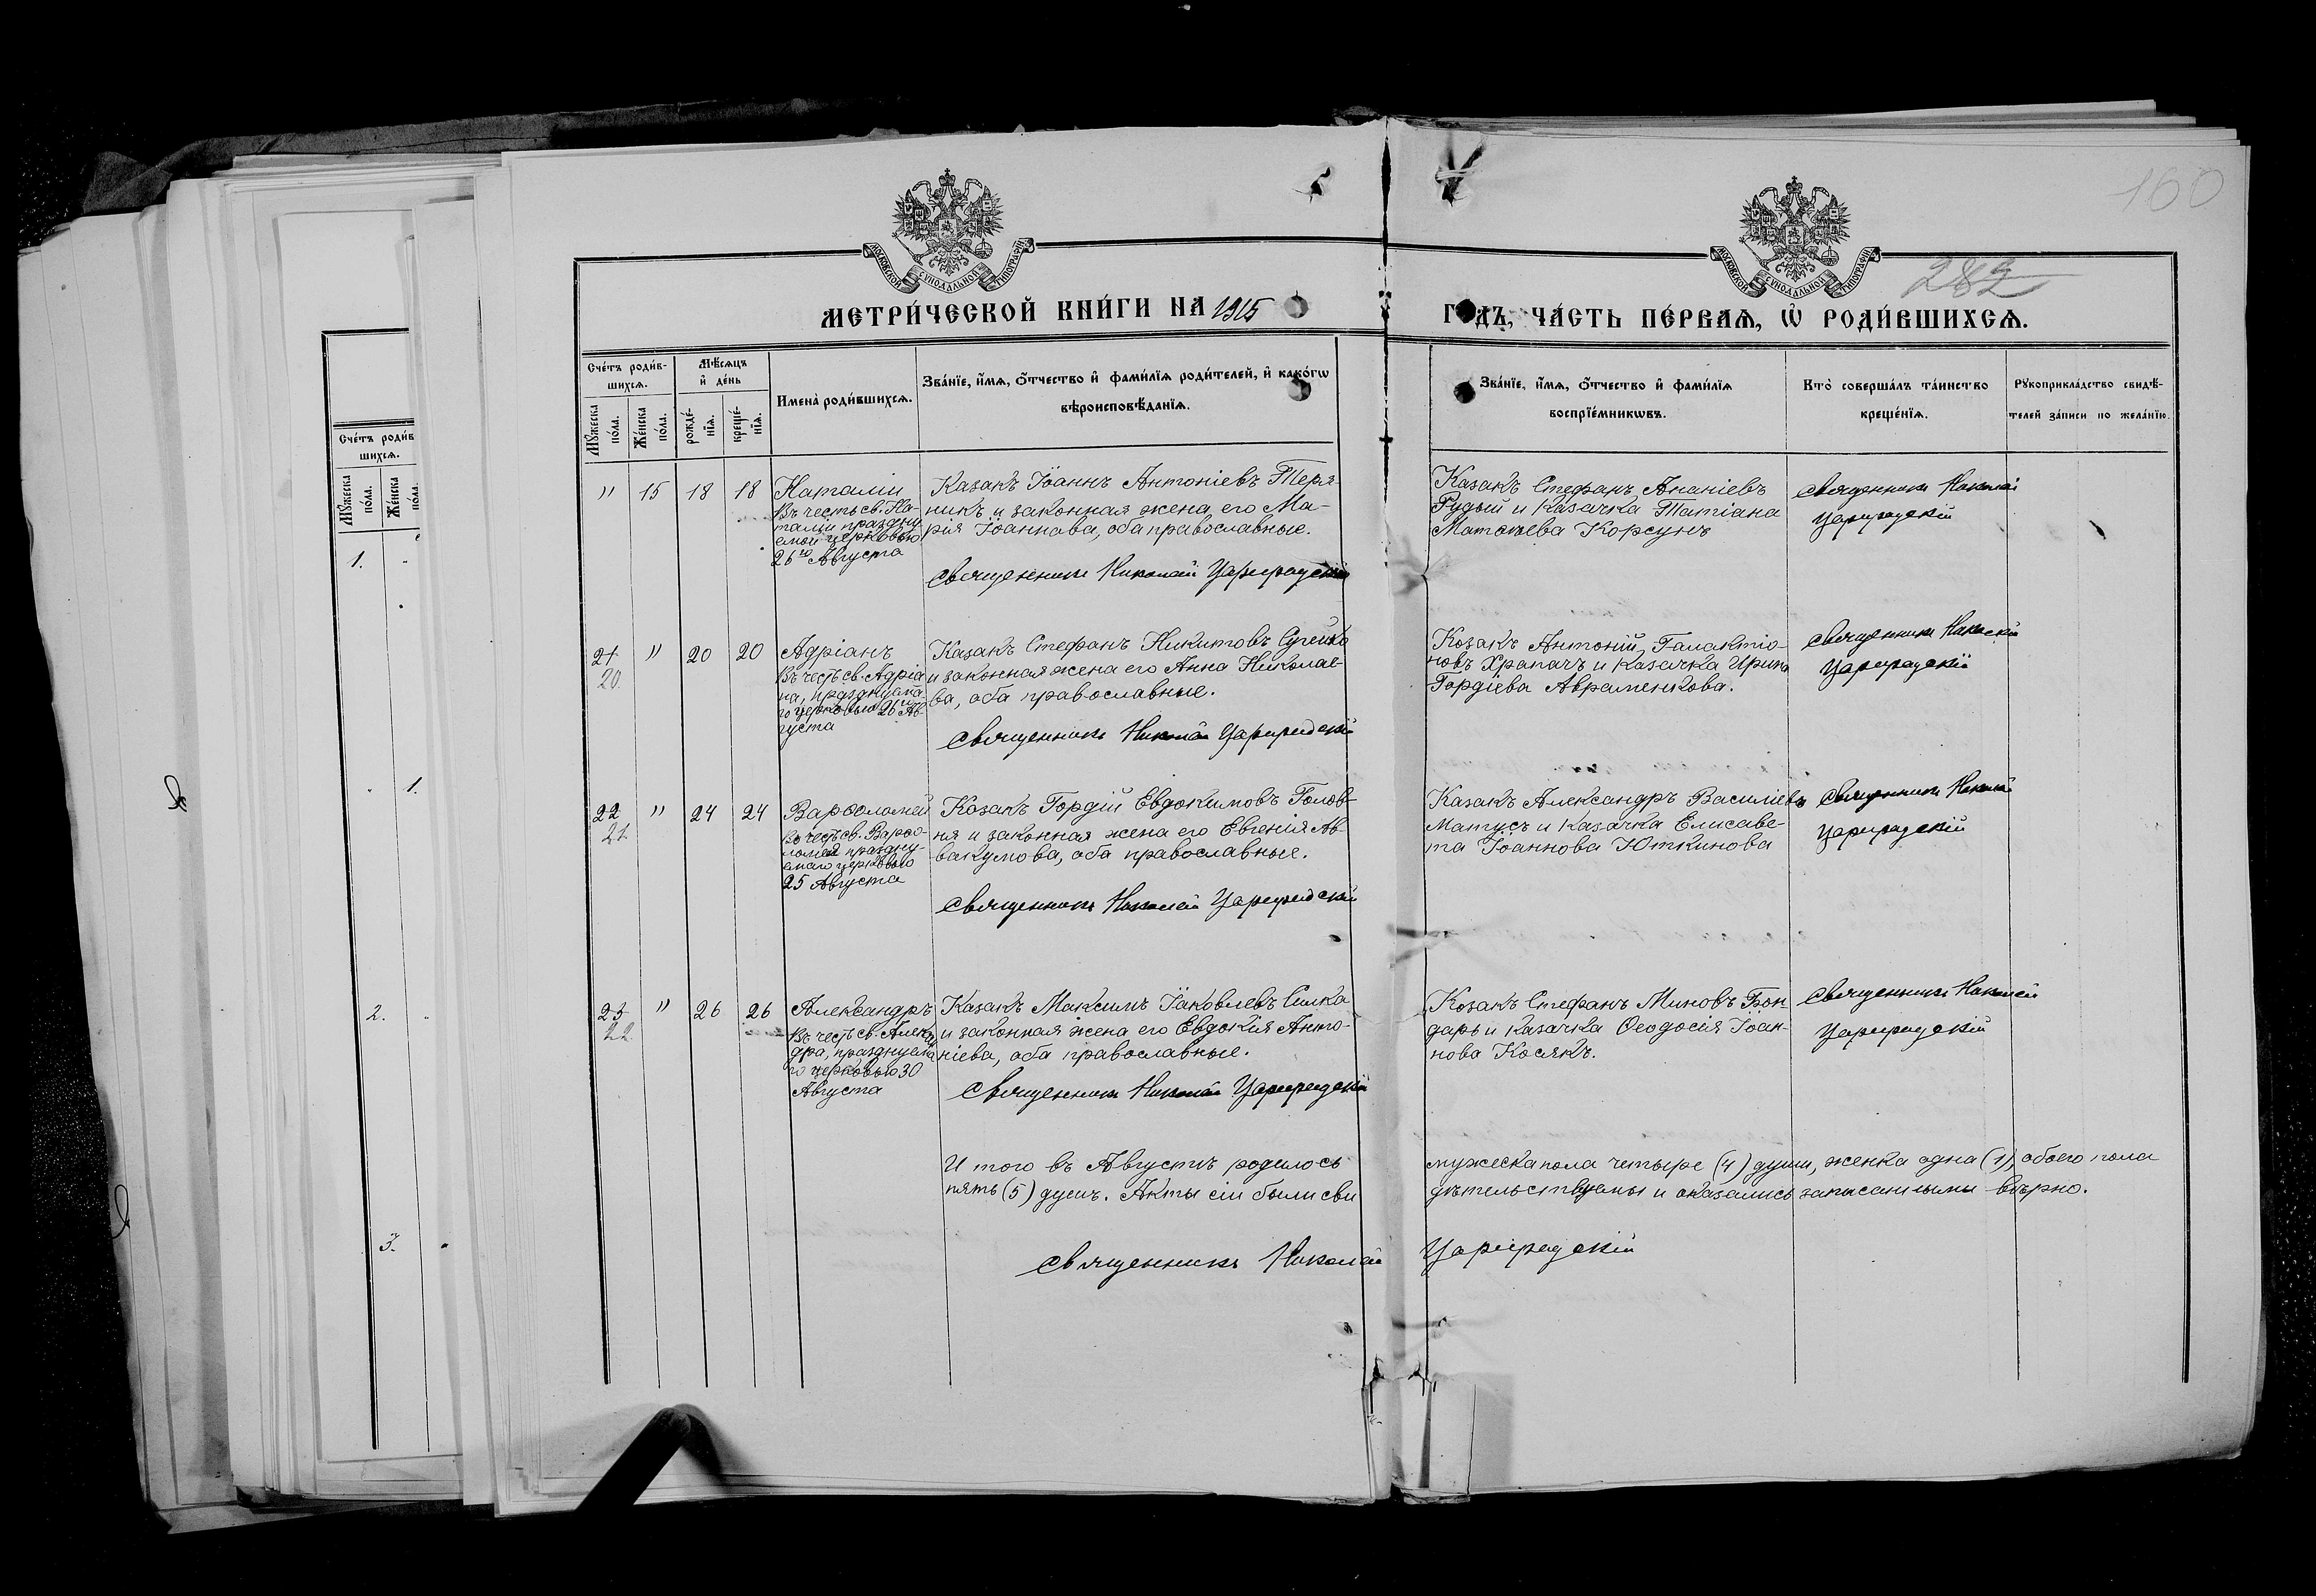 160
282
МОСКОВСКОЙ СѴНОДАЛЬНОЙ ТИПОГРАФІИ
МОСКОВСКОЙ СѴНОДАЛЬНОЙ ТИПОГРАФІИ
МЕТРИ́ЧЕСКОЙ КНИ́ГИ НА 1915
ГОДЪ, ЧА́СТЬ ПЕ́РВАѦ, Ѡ҆ РОДИ́ВШИХСѦ.
Сче́тъ роди́в-
шихсѧ.
Мꙋ́жеска по́ла.
Же́нска по́ла.
Мѣ́сѧцъ
и҆ де́нь
рожде́-
нїѧ.
креще́-
нїѧ.
Имена̀ роди́вшихсѧ.
Зва́нїе, и҆́мѧ, о҆́тчество и҆ фами́лїѧ роди́телей, и҆ како́гѡ
вѣроисповѣ́данїѧ.
Зва́нїе, и҆́мѧ, о҆́тчество и҆ фами́лїѧ
воспрїе́мникѡвъ.
Кто̀ соверша́лъ та́инство
креще́нїѧ.
Рꙋкоприкла́дство свидѣ́-
телей за́писи по жела́нїю.
Сче́тъ роди́в
шихсѧ.
Мꙋ́жеска по́ла.
Же́нска по́ла.
1.
1.
2.
3.
" 15 18 18
Наталіи
Въ честь св. На-
таліи праздну
емой церковью
26го Августа
Казакъ Іоаннъ Антоніевъ Теря-
никъ и законная жена его Ма-
рія Іоаннова, оба православные.
Священникъ Николай Цареградскій
Казакъ Стефанъ Ананіевъ
Рудый и казачка Татіана
Матѳеева Корсунъ
Священникъ Николай
Цареградскій
21 " 20 20
20.
Адріанъ
Въ честь св. Адріа
на, празднуема
го церковью 26 Ав-
густа
Казакъ Стефанъ Никитовъ
и законная жена его Анна Николае-
ва, оба православные.
Священникъ Николай Цареградскій
Козакъ Антоній Галактіо-
новъ Храпачъ и казачка Ирина
Гордіева Авраменкова.
Священникъ Николай
Цареградскій
22 " 24 24
21.
Варѳоломей
Въ честь св. Варѳо-
ломея праздну-
емаго церковью
25 Августа
Козакъ Гордій Евдокимовъ Голов-
ня и законная жена его Евгенія Ав-
вакумова, оба православные.
Священникъ Николай Цареградскій
Казакъ Александръ Василіевъ
Матусъ и казачка Елисаве-
та Іоаннова Юткинова
Священникъ Николай
Цареградскій
23 " 26 26
22.
Александръ
Въ честь св. Алекса
дра, празднуема
го церковью 30
Августа
Казакъ Максимъ Іаковлевъ Силка
и законная жена его Евдокія Анто-
ніева, оба православные.
Священникъ Николай Цареградскій
Козакъ Стефанъ Миновъ Бон-
дарь и казачка Ѳеодосія Іоан-
нова Косякъ.
Священникъ Николай
Цареградскій
И того въ Августѣ родилось мужеска пола четыре (4) души, женка одна (1), обоего пола
пять (5) душъ. Акты сіи были сви дѣтельствуемы и оказались записанными вѣрно.
Священникъ Николай Цареградскій